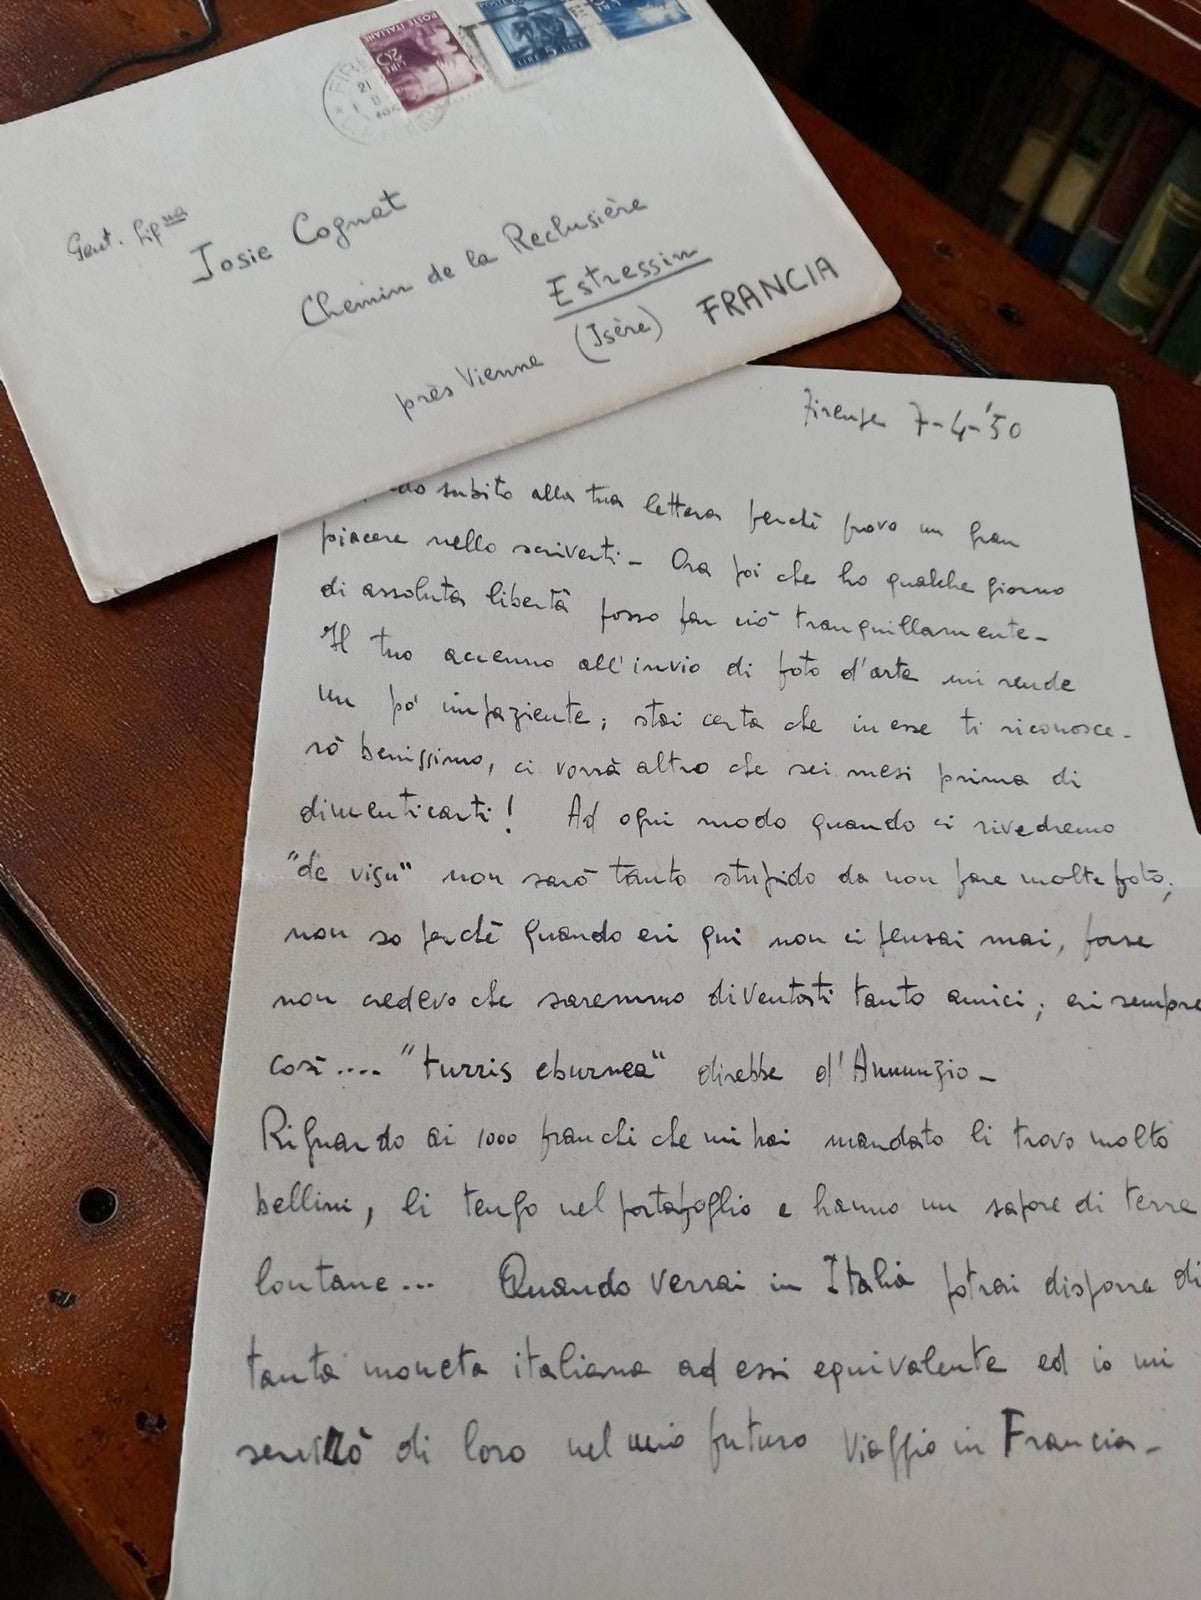 POSTE ITALIANE
LIRE 20
LIRE 5 LIRE
Gent. Sig.na
Josie Cognat
Chemin de la Reclusière
Estressin
près Vienne (Isère) FRANCIA
Firenze 7-4-'50
do subito alla tua lettera perchè provo un gran
piacere nello scriverti - Ora poi che ho qualche giorno
di assoluta libertà posso far ciò tranquillamente -
Il tuo accenno all'invio di foto d'arte mi rende
un po' impaziente; stai certa che in esse ti riconosce-
rò benissimo, ci vorrà altro che sei mesi prima di
dimenticarti! Ad ogni modo quando ci rivedremo
"de visu" non sarò tanto stupido da non fare molte foto;
non so perchè quando eri qui non ci pensai mai, forse
non credevo che saremmo diventati tanto amici; eri sempre
così .... "turris eburnea" direbbe d'Annunzio -
Riguardo ai 1000 franchi che mi hai mandato li trovo molto
bellini, li tengo nel portafoglio e hanno un sapore di terre
lontane ... Quando verrai in Italia potrai disporre di
tanta moneta italiana ad essi equivalente ed io mi
servirò di loro nel mio futuro viaggio in Francia -